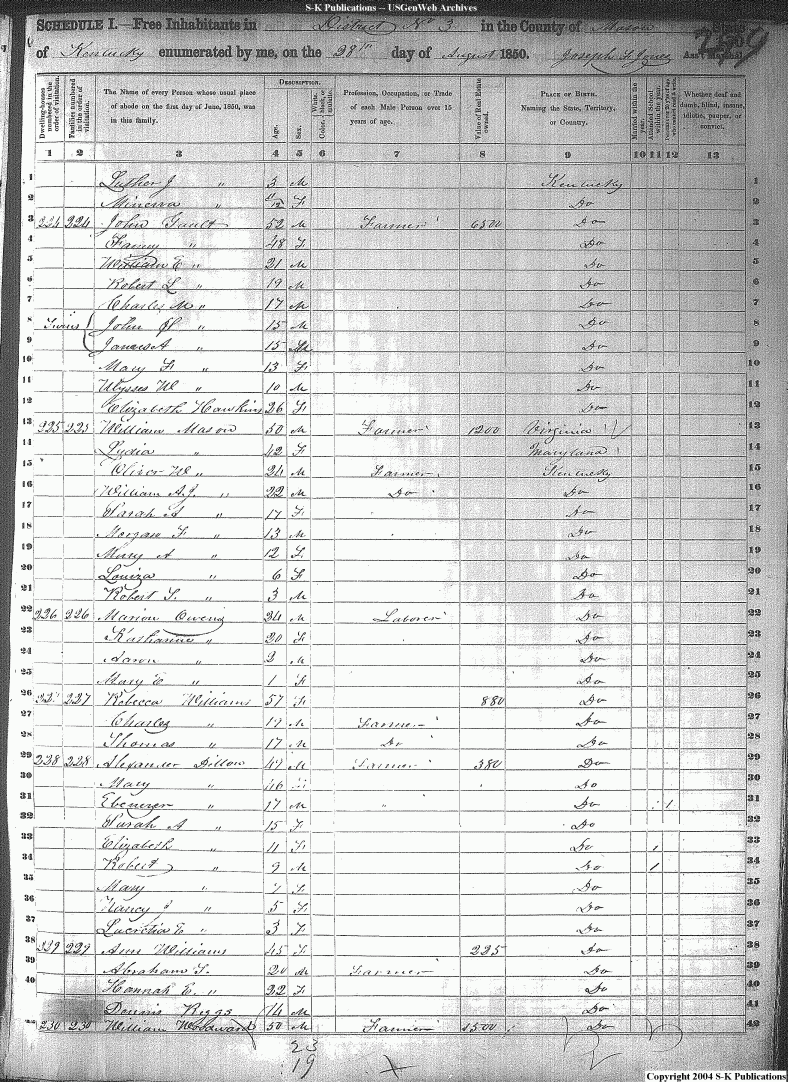 S-K Publications -- USGenWeb Archives
SCHEDULE I.—Free Inhabitants in District No 3 in the County of Mason
of Kentucky enumerated by me, on the 28th day of August 1850. Joseph F. Jones
Dwelling-houses numbered in the order of visitation.
Families numbered in the order of visitation.
The Name of every Person whose usual place of abode on the first day of June, 1850, was in this family.
Description.
Age.
Sex.
Profession, Occupation, or Trade of each Male Person over 15 years of age.
Value of Real Estate owned.
Place of Birth. Naming the State, Territory, or Country.
Married within the year.
Attended School within the year.
Whether deaf and dumb, blind, insane, idiotic, pauper, or convict.
1 2 3 4 5 6 7 8 9 10 11 12 13
1 Luther J " 3 M Kentucky 1
2 Minerva " F Do 2
3 224 224 John Gault 52 M Farmer 6500 Do 3
4 Fanny " 48 F Do 4
5 William E " 21 M Do 5
6 Robert L " 19 M Do 6
7 Charles M " 17 M Do 7
8 Twins John " 15 M Do 8
9 James A " 15 M Do 9
10 Mary F " 13 F Do 10
11 Ulysses W " 10 M Do 11
12 Elizabeth Hawkins 26 F Do 12
13 225 225 William Mason 50 M Farmer 1200 Virginia 13
14 Lydia " 42 F Maryland 14
15 Oliver W " 24 M Farmer Kentucky 15
16 William A.J. " 22 M Do Do 16
17 Sarah A " 17 F Do 17
18 Morgan F " 13 M Do 18
19 Mary A " 12 F Do 19
20 Louiza " 6 F Do 20
21 Robert S. " 3 M Do 21
22 226 226 Marion Owens 24 M Laborer Do 22
23 Katharine " 20 F Do 23
24 Aaron " 2 M Do 24
25 Mary E " 1 F Do 25
26 227 227 Rebecca Williams 57 F 880 Do 26
27 Charles " 19 M Farmer Do 27
28 Thomas " 17 M Do Do 28
29 228 228 Alexander Dillow 47 M Farmer 380 Do 29
30 Mary " 46 Do 30
31 Ebenezer " 17 M " Do 1 31
32 Sarah A " 15 F Do 32
33 Elizabeth " 11 F Do 1 33
34 Robert " 9 M Do 1 34
35 Mary " 7 F Do 35
36 Nancy J " 5 F Do 36
37 Lucretia E " 3 F Do 37
38 229 229 Ann Williams 45 F 225 Do 38
39 Abraham T. 20 M Farmer Do 39
40 Hannah E. " 22 F Do 40
Dennis Riggs 14 M Do 41
230 230 William Woodward 50 M Farmer 1500 Do 42
23
19
Copyright 2004 S-K Publications